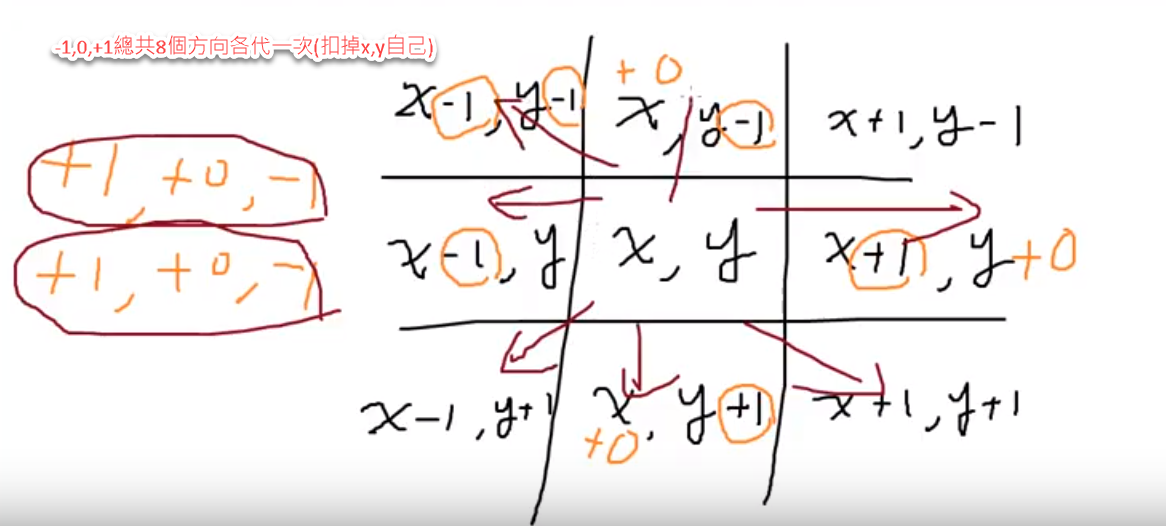 -1,0,+1總共8個方向各代一次(扣掉x,y自己)
+0
x-1, y-1
x, y-1
x+1, y-1
+1, +0, -1
x-1, y
x, y
x+1, y+0
+1, +0, -1
x-1, y+1
x, y+1
x+1, y+1
+0